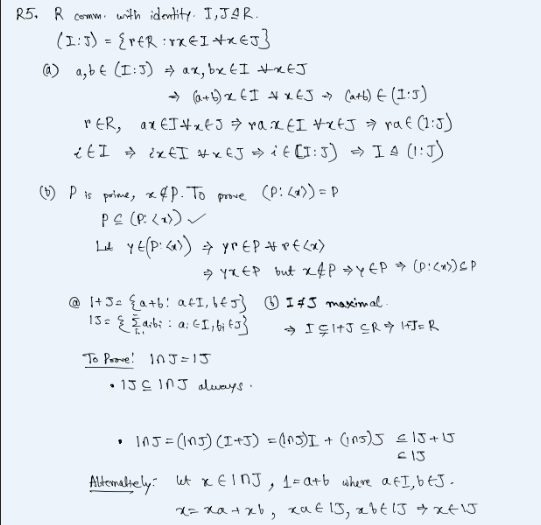 R5. R comm. with identity. I, J ⊴ R.
(I:J) = {r∈R : rx∈I ∀x∈J}
(a) a, b ∈ (I:J) ⇒ ax, bx ∈ I ∀x∈J
⇒ (a+b)x ∈ I ∀ x∈J ⇒ (a+b) ∈ (I:J)
r∈R, ax∈I ∀x∈J ⇒ rax ∈ I ∀x∈J ⇒ ra ∈ (I:J)
i∈I ⇒ ix∈I ∀x∈J ⇒ i∈(I:J) ⇒ I ⊴ (I:J)
(b) P is prime, x∉P. To prove (P:⟨x⟩) = P
P ⊆ (P:⟨x⟩) ✓
Let y∈(P:⟨x⟩) ⇒ yr∈P ∀ r∈⟨x⟩
⇒ yx∈P but x∉P ⇒ y∈P ⇒ (P:⟨x⟩) ⊆ P
(a) I+J = {a+b : a∈I, b∈J} (b) I≠J maximal.
IJ = {Σ aibi : ai∈I, bi∈J} ⇒ I ⊊ I+J ⊆ R ⇒ I+J = R
To Prove: I∩J = IJ
• IJ ⊆ I∩J always.
• I∩J = (I∩J)(I+J) = (I∩J)I + (I∩J)J ⊆ IJ + IJ
⊆ IJ
Alternatively: let x∈I∩J, 1 = a+b where a∈I, b∈J.
x = xa + xb, xa∈IJ, xb∈IJ ⇒ x∈IJ